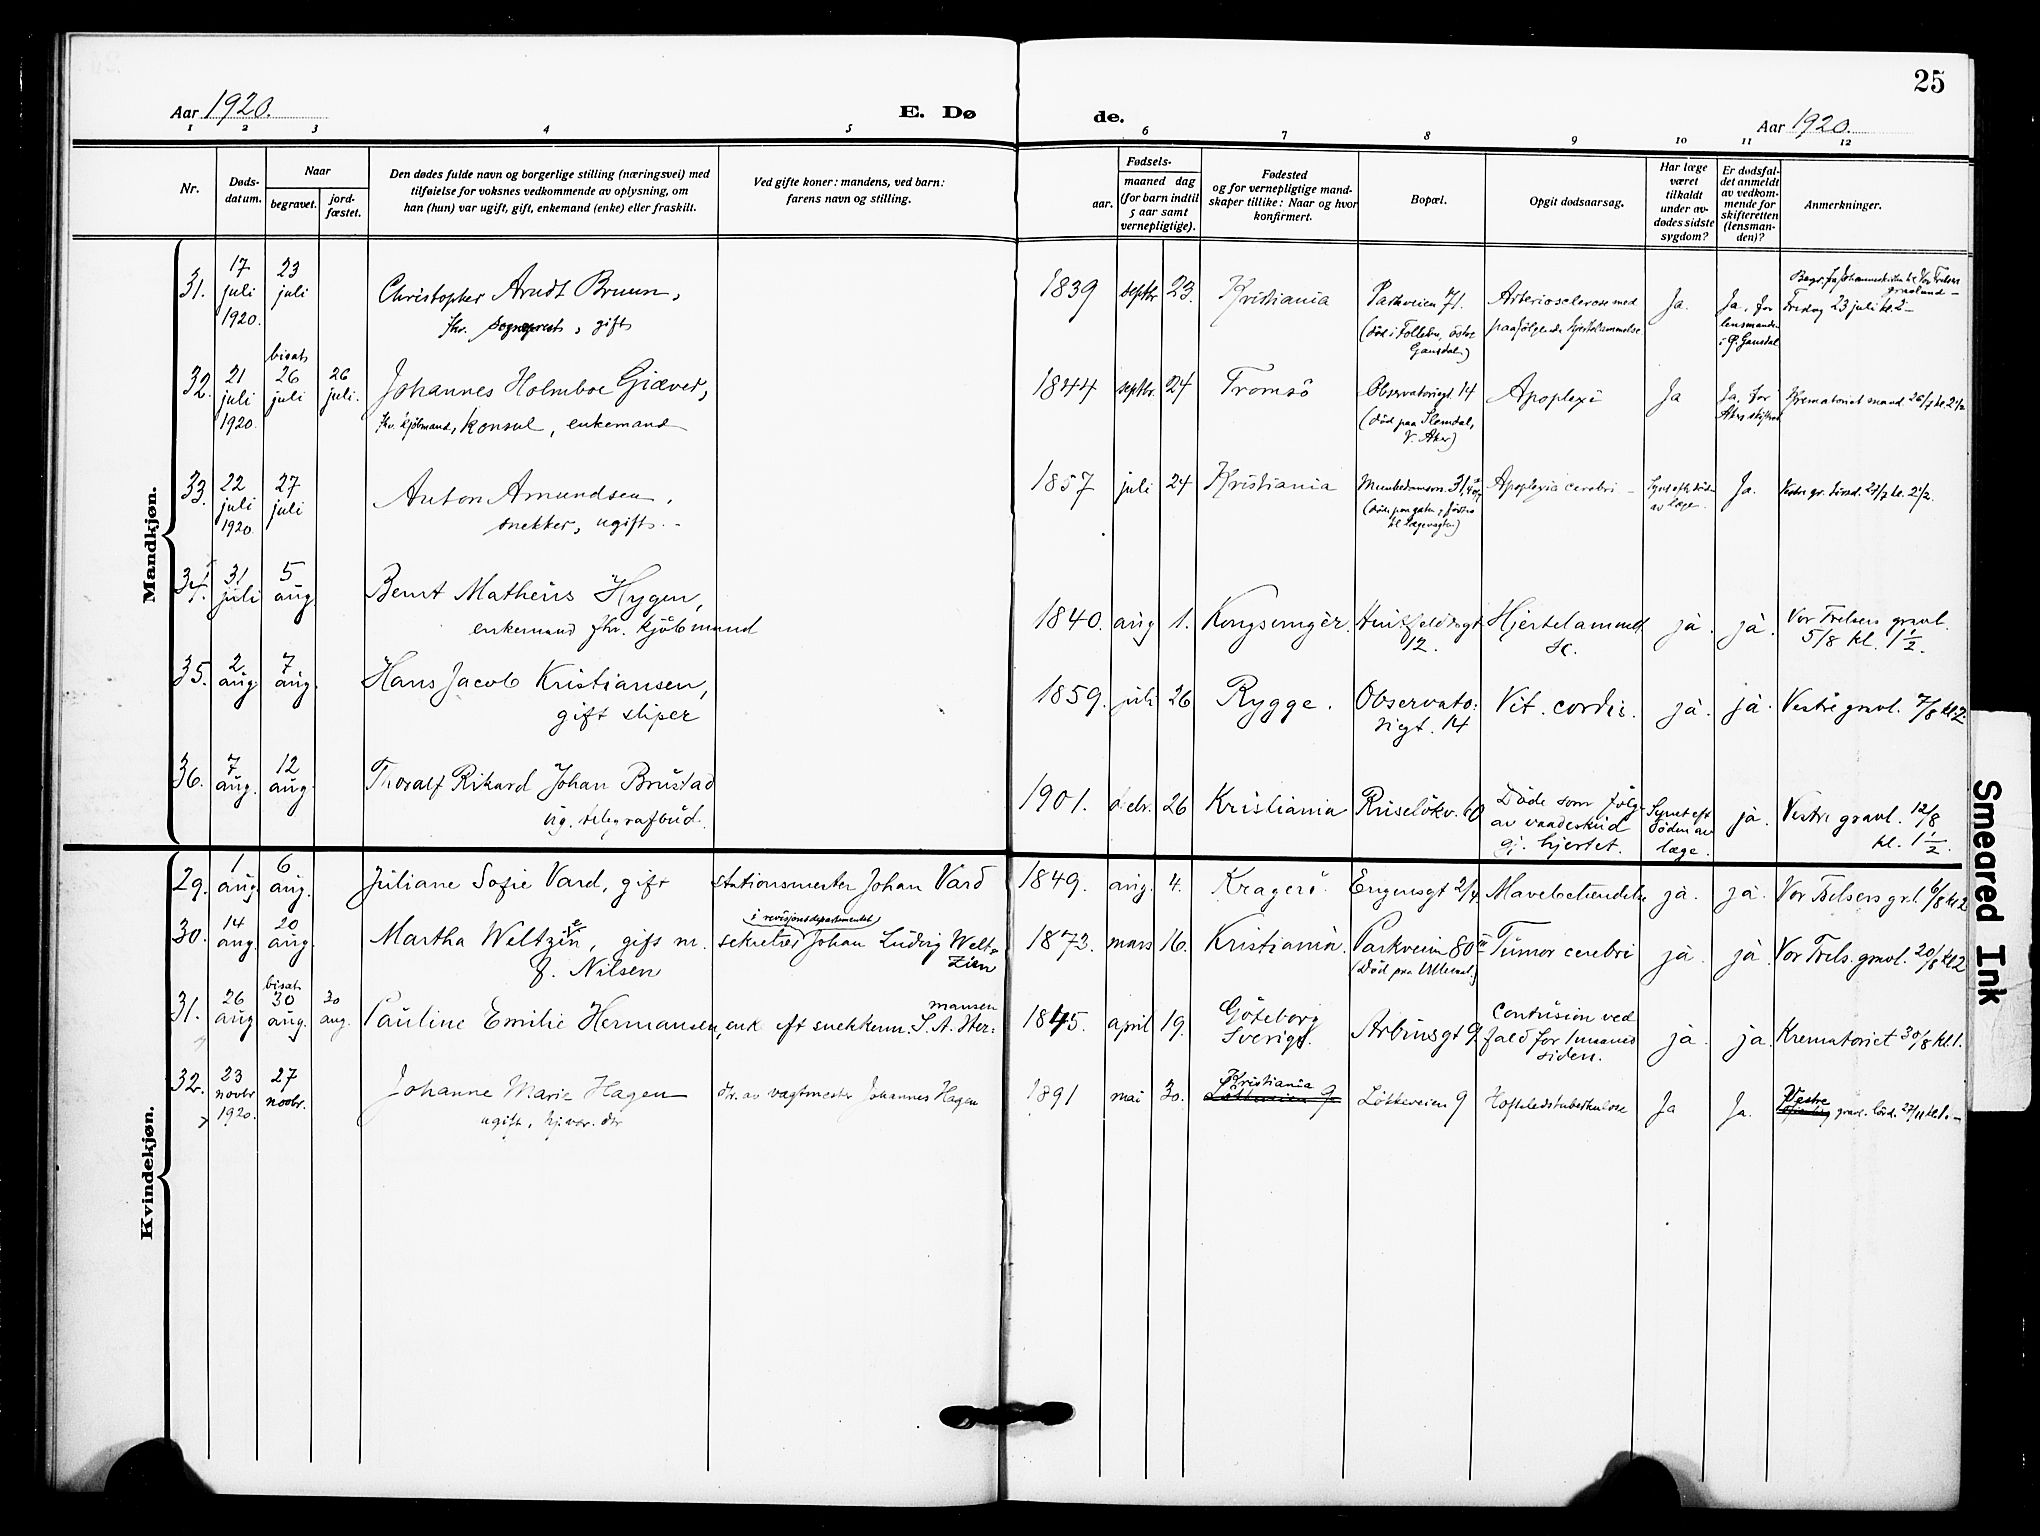 25
Aar 1920.
E. Dø
de.
Aar 1920.
1 2 3 4 5 6 7 8 9 10 11 12
Nr.
Døds-
datum.
Naar
begravet.
jord-
fæstet.
Den dødes fulde navn og borgerlige stilling (næringsvei) med
tilføielse for voksnes vedkommende av oplysning, om
han (hun) var ugift, gift, enkemand (enke) eller fraskilt.
Ved gifte koner: mandens, ved barn:
farens navn og stilling.
Fødsels-
aar.
maaned dag
(for barn indtil
5 aar samt
vernepligtige).
Fødested
og for vernepligtige mand-
skaper tillike: Naar og hvor
konfirmert.
Bopæl.
Opgit dødsaarsag.
Har læge
været
tilkaldt
under av-
dødes sidste
sygdom?
Er dødsfal-
det anmeldt
av vedkom-
mende for
skifteretten
(lensman-
den)?
Anmerkninger.
Mandkjøn.
31. 17 juli 1920. 23 juli
Christopher Arndt Bruun,
fhv. sogneprest, gift
1839 septbr 23. Kristiania
Parkveien 71.
(død i Follebu, östre
Gausdal)
Arteriosclerose med
paafølgende hjertelammelse
Ja.
Ja, for
lensmanden
i Ø. Gausdal
Begr. fra Johanneskirken til Vor Frelsers
gravlund —
Fredag 23 juli kl. 2 —
32. 21 juli 1920. bisat 26 juli 26 juli.
Johannes Holmboe Giæver,
fhv. kjöbmand, konsul, enkemand
1844 septbr. 24 Tromsö
Observatoriegt. 14
(död paa Slemdal,
V. Aker)
Apoplexi
Ja
Ja, for
Aker skifteret
Krematoriet mand. 26/7 kl. 2 1/2
33. 22 juli 1920. 27 juli
Anton Amundsen,
snekker, ugift. -
1857 juli 24 Kristiania
Munkedamsv. 31,
Apoplexia cerebri —
Synet efter död
av læge.
Ja.
Vestre gr. tirsd. 27/7 kl. 2 1/2.
34. 31 juli 5 aug.
Bernt Matheus Hygen,
enkemand fhv. kjöbmand
1840. aug 1. Kongsvinger.
Huitfeldtsgt
12.
Hjertelammelse
ja. ja.
Vor Frelsers gravl.
5/8 kl. 1 1/2.
35. 2. aug. 7 aug.
Hans Jacob Kristiansen,
gift sliper
1859. juli 26 Rygge.
Observato-
riegt. 14
Vit. cordis.
ja. ja.
Vestre gravl. 7/8 kl 2.
36. 7 aug. 12 aug.
Thoralf Rikard Johan Brustad
ug. telegrafbud.
1901. debr. 26 Kristiania
Ruselökv. 60
Døde som følge
av vaadeskud
gj. hjertet.
Synet eft
döden av
læge.
ja.
Vestre gravl. 12/8
kl. 1 1/2.
Kvindekjøn.
29. 1 aug 6 aug.
Juliane Sofie Vard, gift
stationsmester Johan Vard
1849. aug. 4. Kragerö.
Engensgt 2/4
Mavebetændelse
ja. ja.
Vor Frelsers grl. 6/8 kl 2
30. 14 aug. 20 aug.
Martha Weltzien, gift m.
f. Nilsen
i revisjonsdepartementet
sekretær Johan Ludvig Welt-
zien
1873. mars 16. Kristiania.
Parkveien 80 II
(død paa Ullevaal.)
Tumor cerebri
ja. ja.
Vor Frels. gravl. 20/8 kl 2
31. 26 aug bisat 30 aug. 30 aug.
Pauline Emilie Hermansen,
enk. eft snekkerm. S. A. Her-
mansen
1845. april 19.
Göteborg
Sverige.
Arbinsgt 9
Contusion ved
fald for 1 maaned
siden.
ja ja.
Krematoriet 30/8 kl 1.
32. 23 novbr 1920. 27 novbr.
Johanne Marie Hagen
ugift, hjvær. dtr
dtr. av vagtmester Johannes Hagen
1891 mai 30.
Kristiania
Løkkeveien 9
Løkkeveien 9
Hofteledstuberkulose
Ja Ja.
Vestre
gravl. lörd. 27/11 kl. 1. —
Smeared Ink